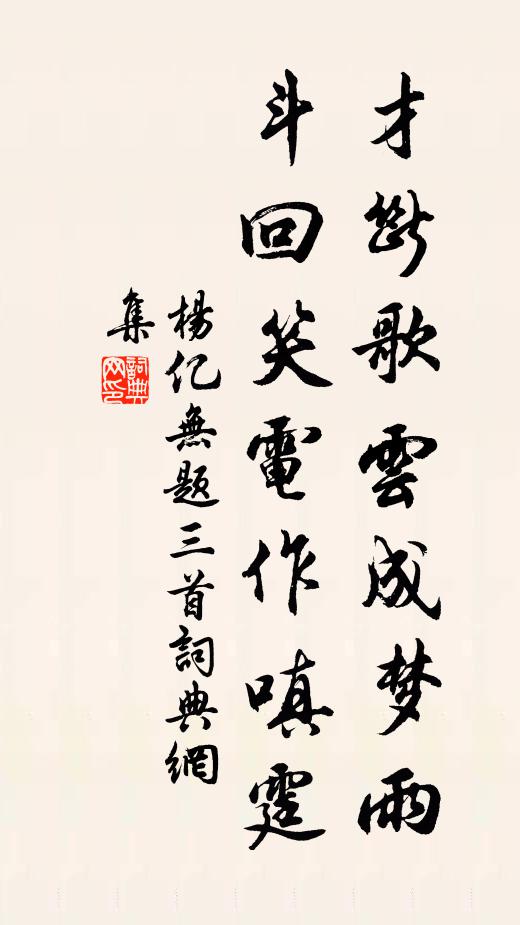 才断歌雲成梦雨
斗回笑電作嗔霆
楊亿無題三首詞典網
集
詞典网印